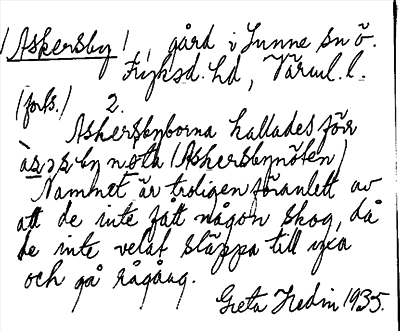 (Askersby), gård i Sunne sn ö.
Fryksd. hd, Värml. l.
(forts.) 2.
Askersbyborna kallades för
(Askersbynöten)
Namnet är troligen föranlett av
att de inte fått någon skog, då
de inte velat släppa till yxa
och gå rågång.
Greta Hedin 1935.